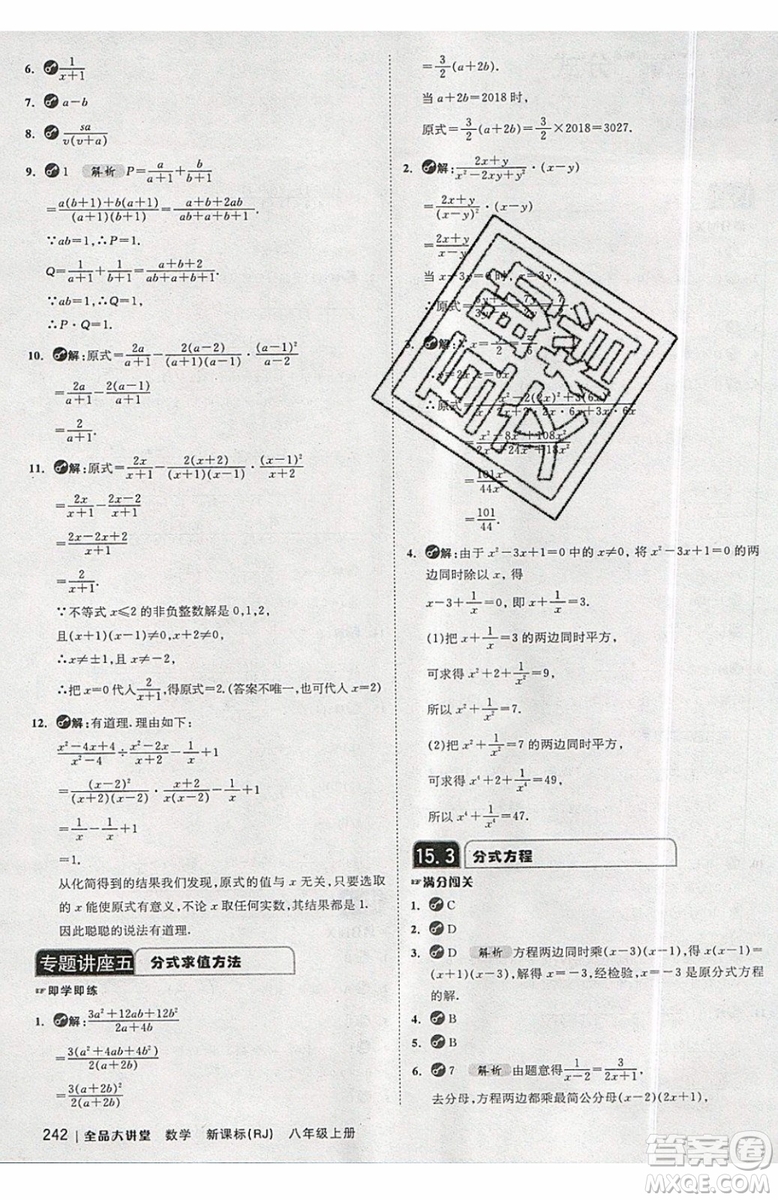 6. 1/(x+1)
7. a-b
8. sa/(v(v+a))
9. 1 解析 P=a/(a+1)+b/(b+1)
=(a(b+1)+b(a+1))/((a+1)(b+1))=(a+b+2ab)/((a+1)(b+1)).
∵ab=1,∴P=(a+b+2)/((a+1)(b+1)).
Q=1/(a+1)+1/(b+1)=(a+b+2)/((a+1)(b+1)).
∵ab=1,∴Q=(a+b+2)/((a+1)(b+1)).
∴P·Q=1.
10. 解:原式=2a/(a+1)-2(a-2)/((a+1)(a-1))·(a-1)²/(a-2)
=2a/(a+1)-2(a-1)/(a+1)
=2/(a+1).
11. 解:原式=2x/(x+1)-2(x+2)/((x+1)(x-1))·(x-1)²/(x+2)
=2x/(x+1)-(2x-2)/(x+1)
=(2x-2x+2)/(x+1)
=2/(x+1).
∵不等式x≤2的非负整数解是0,1,2,
且(x+1)(x-1)≠0,
∴x≠±1,
∴把x=0代入2/(x+1),得原式=2.(答案不唯一,也可代x=2)
12. 解:有道理.理由如下:
(x²-4x+4)/(x²-4)÷(x²-2x)/(x+2)-1/x+1
=(x-2)²/((x+2)(x-2))·(x+2)/(x(x-2))-1/x+1
=1/x-1/x+1
=1.
从化简得到的结果我们发现,原式的值与x无关,只要选取
的x能使原式有意义,不论x取任何实数,其值都是1.
因此聪聪的说法有道理.
专题讲座五 分式求值方法
即学即练
1. 解:(3a²+12ab+12b²)/(2a+4b)
=3(a²+4ab+4b²)/(2(a+2b))
=3(a+2b)²/(2(a+2b))
242 全品大讲堂 数学 新课标(RJ) 八年级上册
=3/2(a+2b).
当a+2b=2018时,
原式=3/2(a+2b)=3/2×2018=3027.
2. 解:(2x+y)/(x²-2xy+y²)·(x-y)
=(2x+y)/(x-y)²·(x-y)
=(2x+y)/(x-y).
∴原式
3. 解
∴原式=
=101x²/44x²
=101/44.
4. 解:由于x²-3x+1=0中的x≠0,将x²-3x+1=0的两
边同时除以x,得
x-3+1/x=0,即x+1/x=3.
(1)把x+1/x=3的两边同时平方,
可求得x²+1/x²+2=9,
所以x²+1/x²=7.
(2)把x²+1/x²=7的两边同时平方,
可求得x⁴+1/x⁴+2=49,
所以x⁴+1/x⁴=47.
15.3 分式方程
满分闯关
1. C
2. D
3. D 解析 方程两边同时乘(x-3)(x-1),得x(x-1)
=(x-3)(x+1),解得x=-3,经检验,x=-3是原分式方程
的解.
4. B
5. B
6. 7 解析 由题意得1/(x-2)=3/(2x+1),
去分母,方程两边都乘最简公分母(x-2)(2x+1),
作业精灵